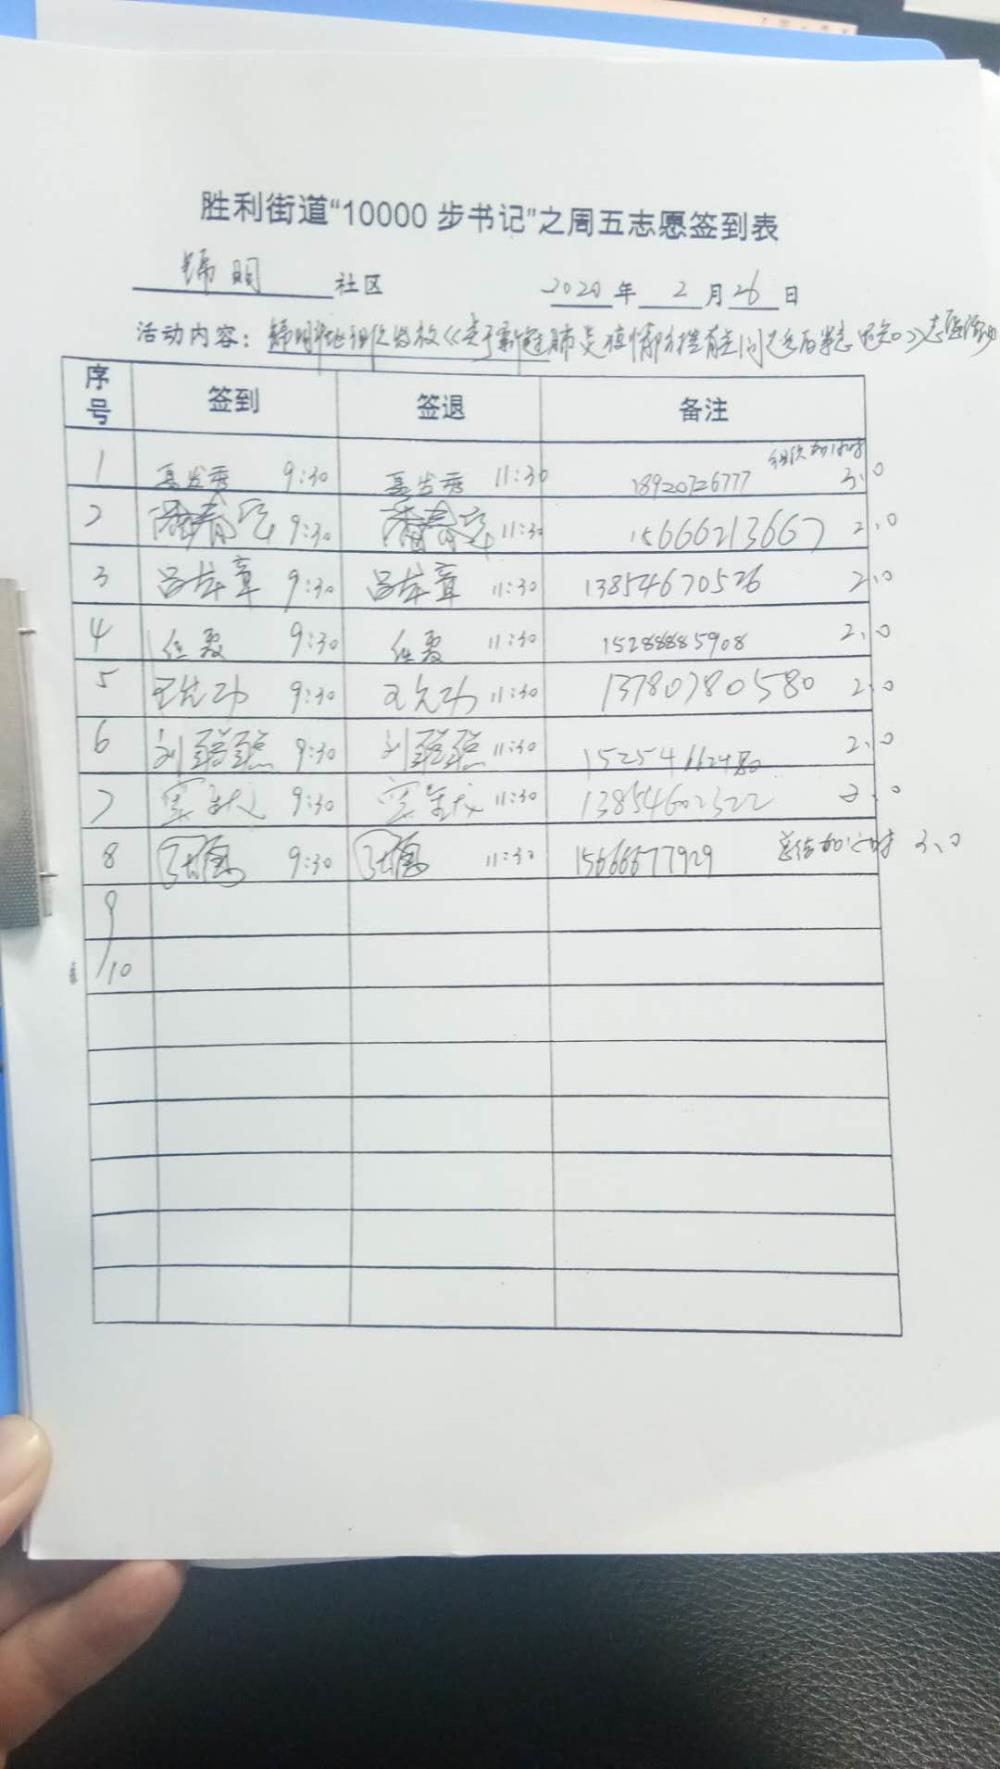 胜利街道“10000 步书记”之周五志愿签到表
锦明 社区 2020 年 2 月 26 日
活动内容：锦明社区组织发放《关于新冠肺炎疫情防控有关问题 》志愿活动
序号 签到 签退 备注
组织加1小时
1 9:30 11:30 18920726777 3.0
2 9:30 11:30 15666213667 2.0
3 吕本章 9:30 吕本章 11:30 13854670526 2.0
4 任霞 9:30 任霞 11:30 15288885908 2.0
5 王先功 9:30 王先功 11:30 13780780580 2.0
6 刘聪聪 9:30 刘聪聪 11:30 15254662480 2.0
7 9:30 11:30 13854602322 2.0
8 9:30 11:30 15666677929 总结加1小时 3.0
9
10